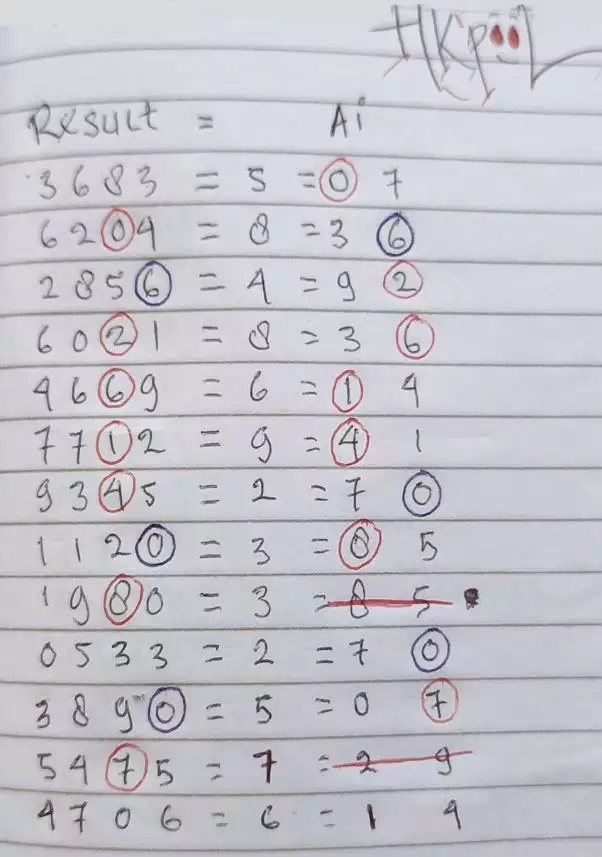 HKpool
Result = Ai
3683 = 5 = 0 7
6204 = 8 = 3 6
2856 = 4 = 9 2
6021 = 8 = 3 6
4669 = 6 = 1 4
7712 = 9 = 4 1
9345 = 2 = 7 0
1120 = 3 = 8 5
1980 = 3 = 8 5
0533 = 2 = 7 0
3890 = 5 = 0 7
5475 = 7 = 2 9
4706 = 6 = 1 4